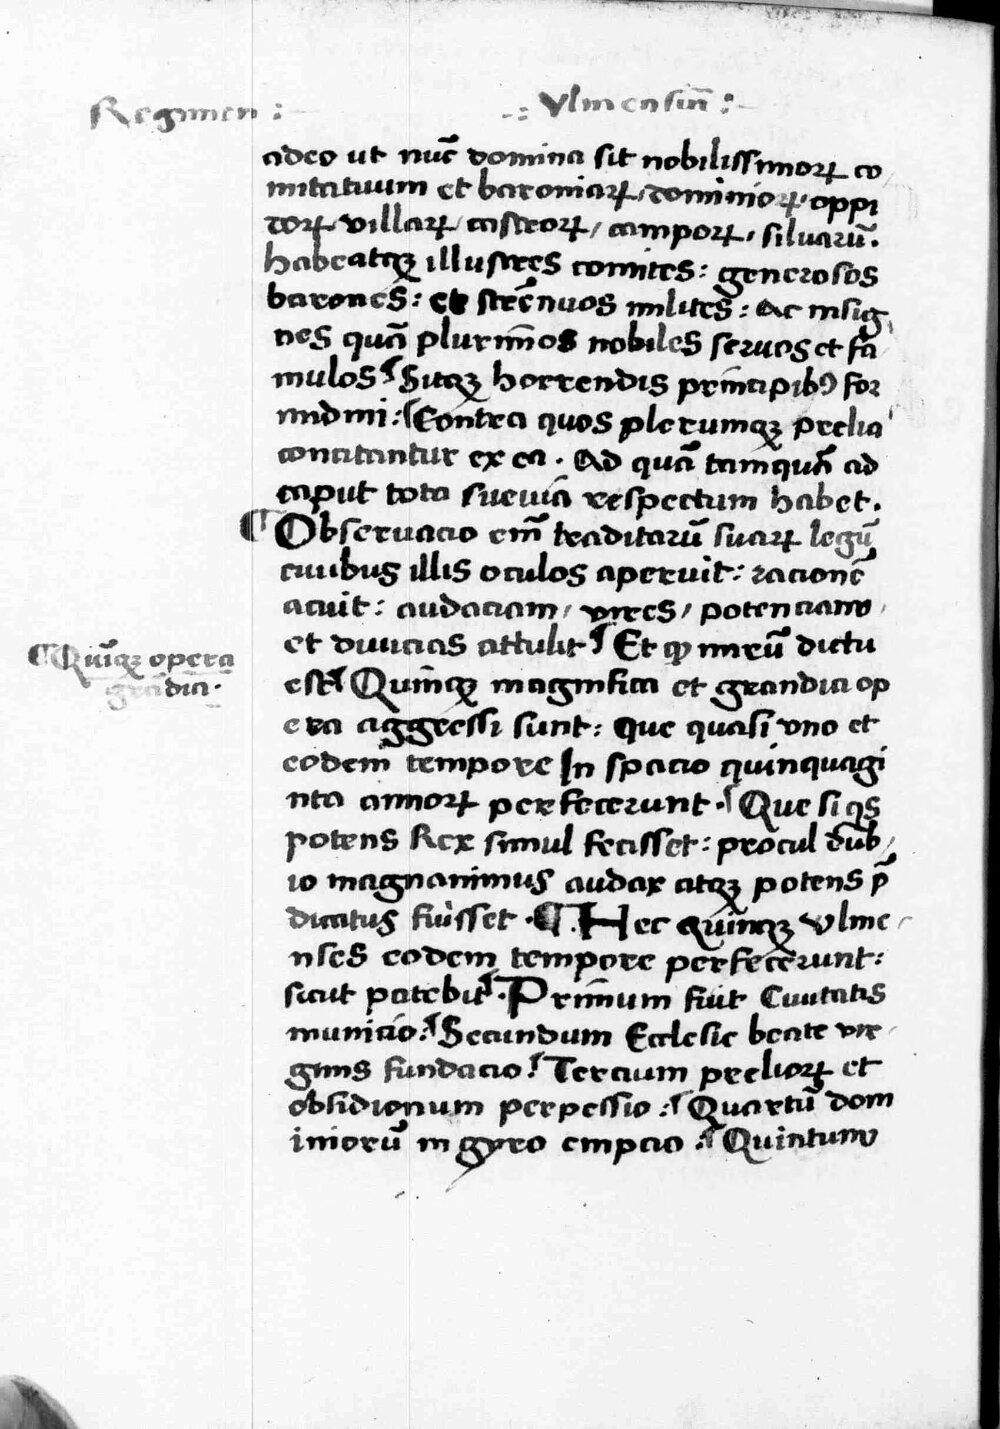 Regimen :
-:: Vlmensiū :-
adeo ut nūc domina sit nobilissimoꝝ co
mitatuum et baroniaꝝ, dominioꝝ, oppi
doꝝ villaꝝ, castroꝝ, campoꝝ, siluarū.
habeatqꝫ illustres comites : generosos
barones : et strēnuos milites : Ac insig
nes quā plurīmos nobiles seruos et fa
mulos Sitqꝫ horrendis principibꝰ for
midini : Contra quos plerumqꝫ prelia
concitantur ex ea . Ad quā tamquā ad
caput tota sueuia respectum habet .
¶ Obseruacio em̄ traditarū suaꝝ legū
ciuibus illis oculos aperuit : racionē
acuit : audaciam, vires, potenciam,
et diuicias attulit Et ꝙ mirū dictu
est Quinqꝫ magnifica et grandia op
era aggressi sunt : que quasi vno et
eodem tempore In spacio quinquagi
nta annoꝝ perfecerunt . Que si qs
potens Rex simul fecisset : procul dub,
io magnanimus audax atqꝫ potens p̄
dicatus fuisset . ¶ Hec quinqꝫ vlme
nses eodem tempore perfecerunt :
sicut patebit . Primum fuit Ciuitatis
municio : Secundum Ecclesie beate vir
ginis fundacio : Tercium prelioꝝ et
obsidionum perpessio : Quartū dom
iniorū in gyro empcio : Quintum
¶ Quīqꝫ opera
grādia .